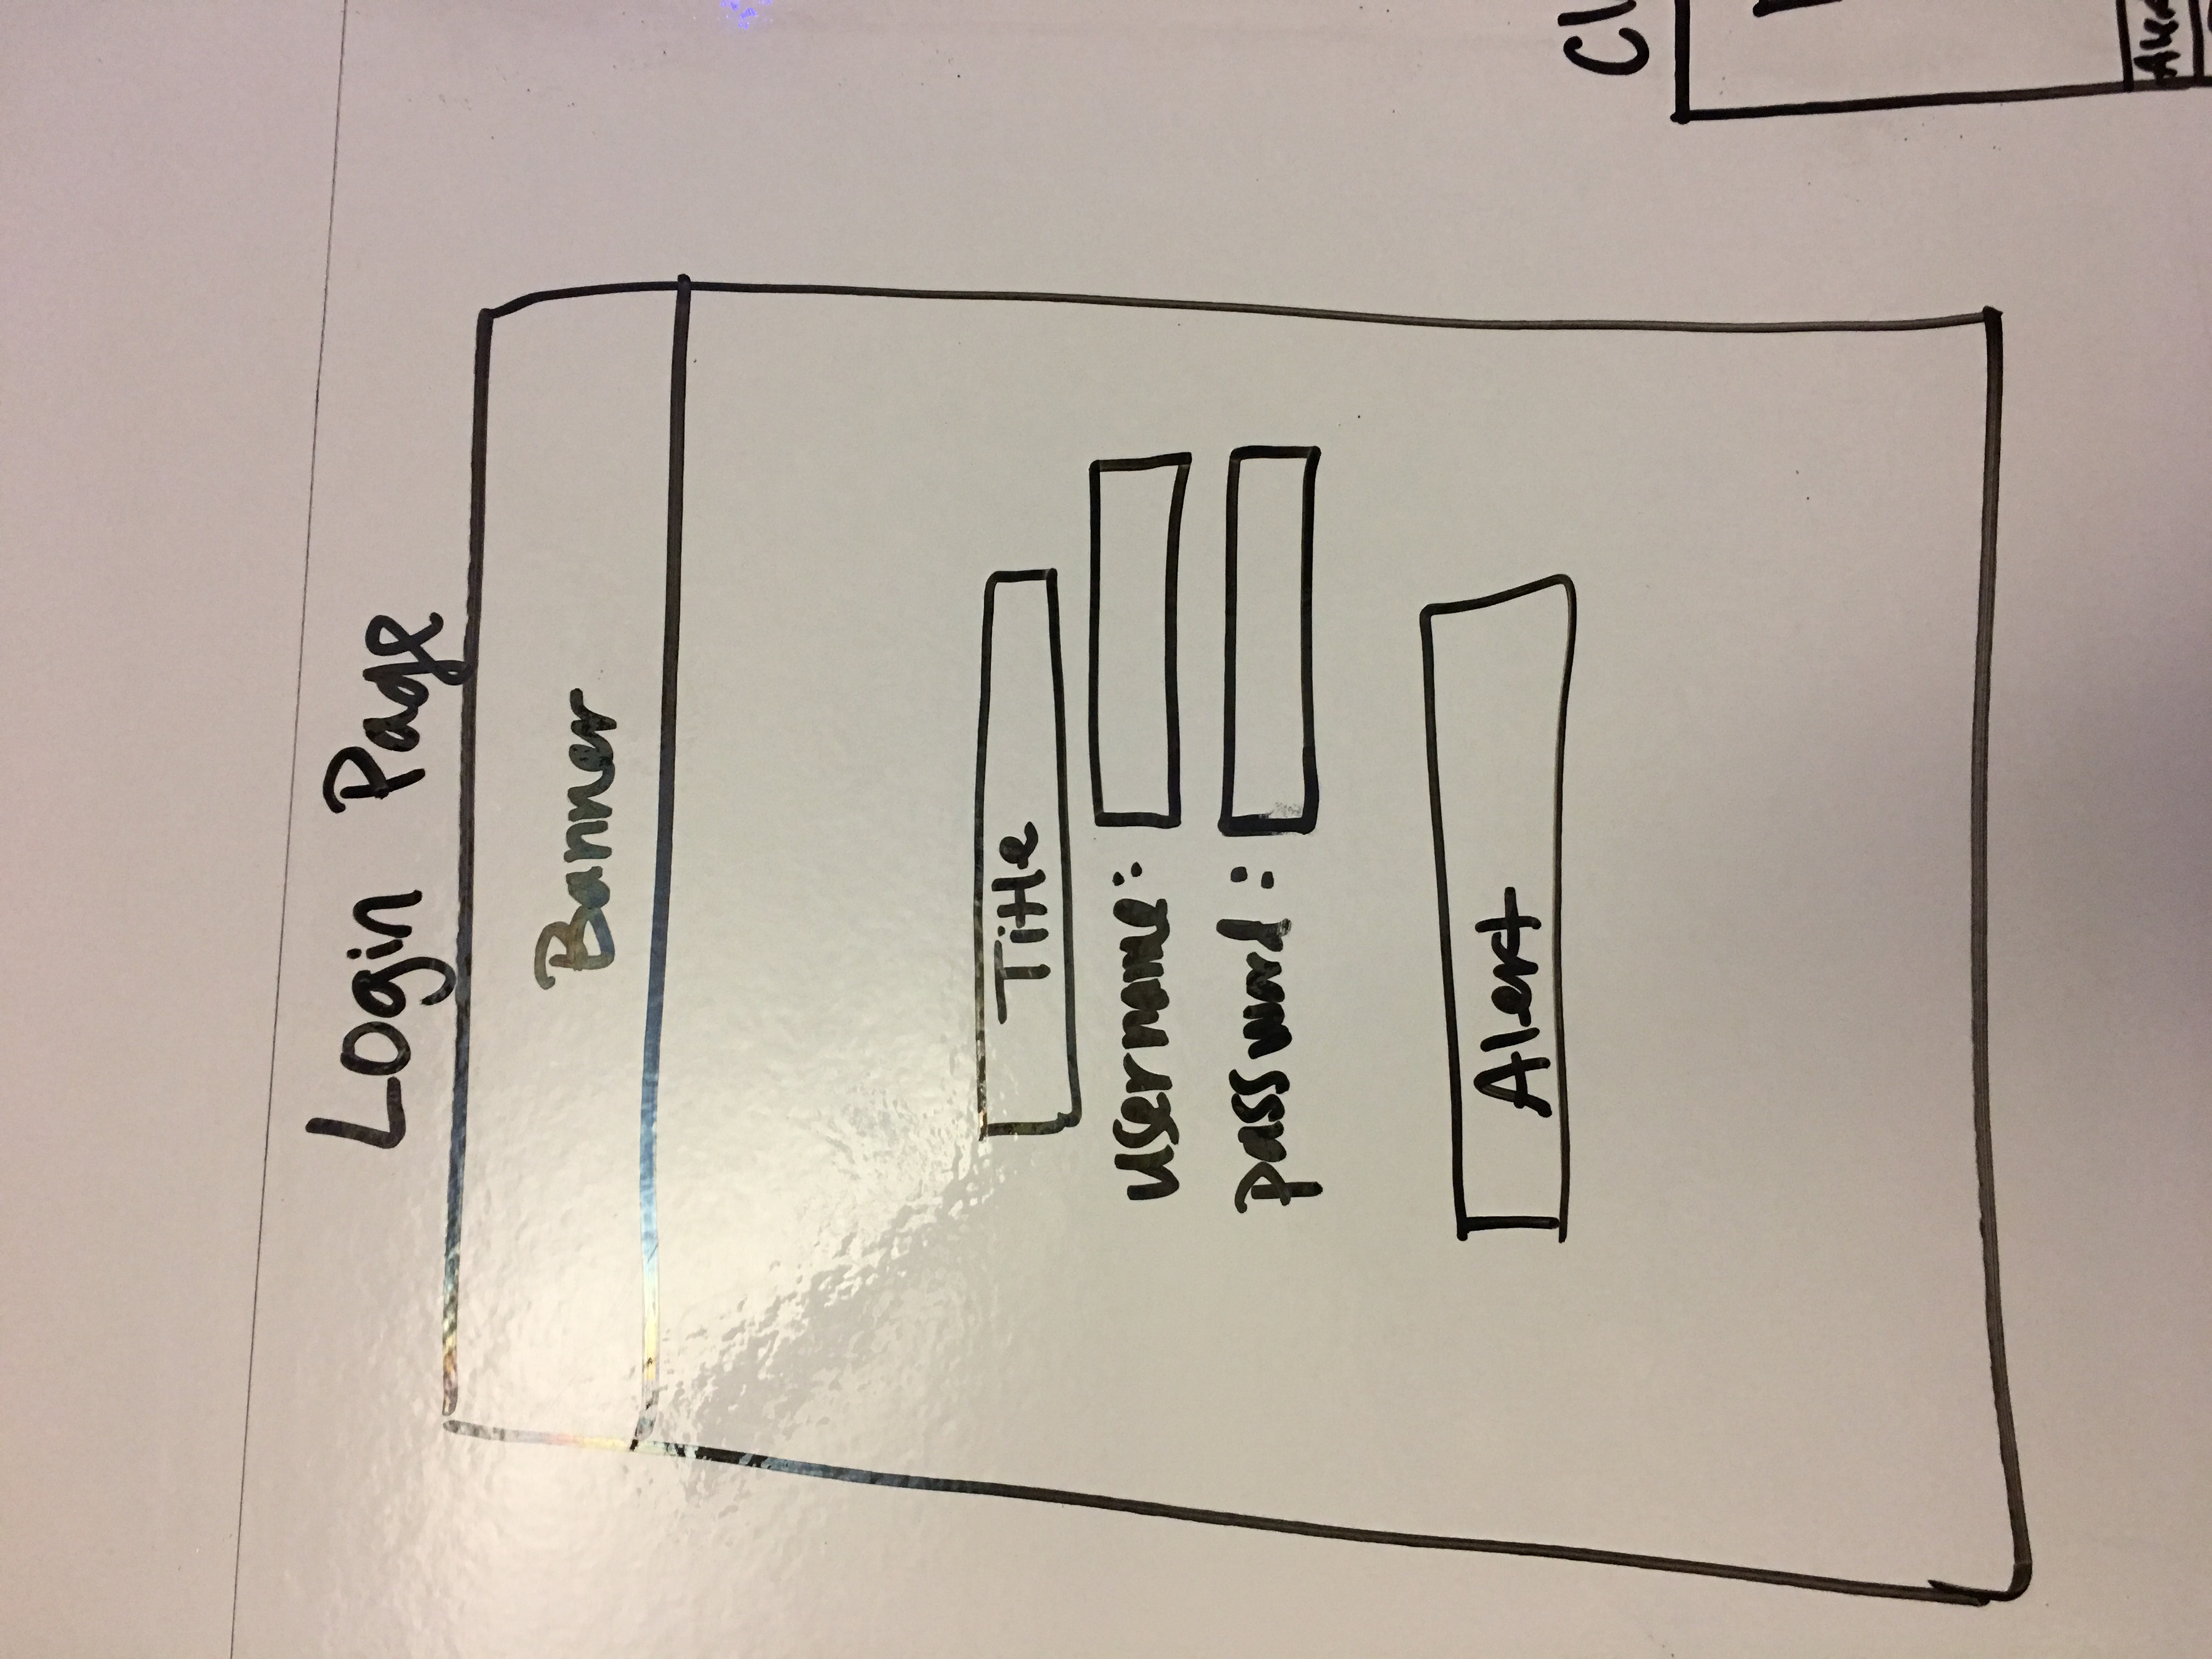 Login Page
Banner
Title
username:
password:
Alert